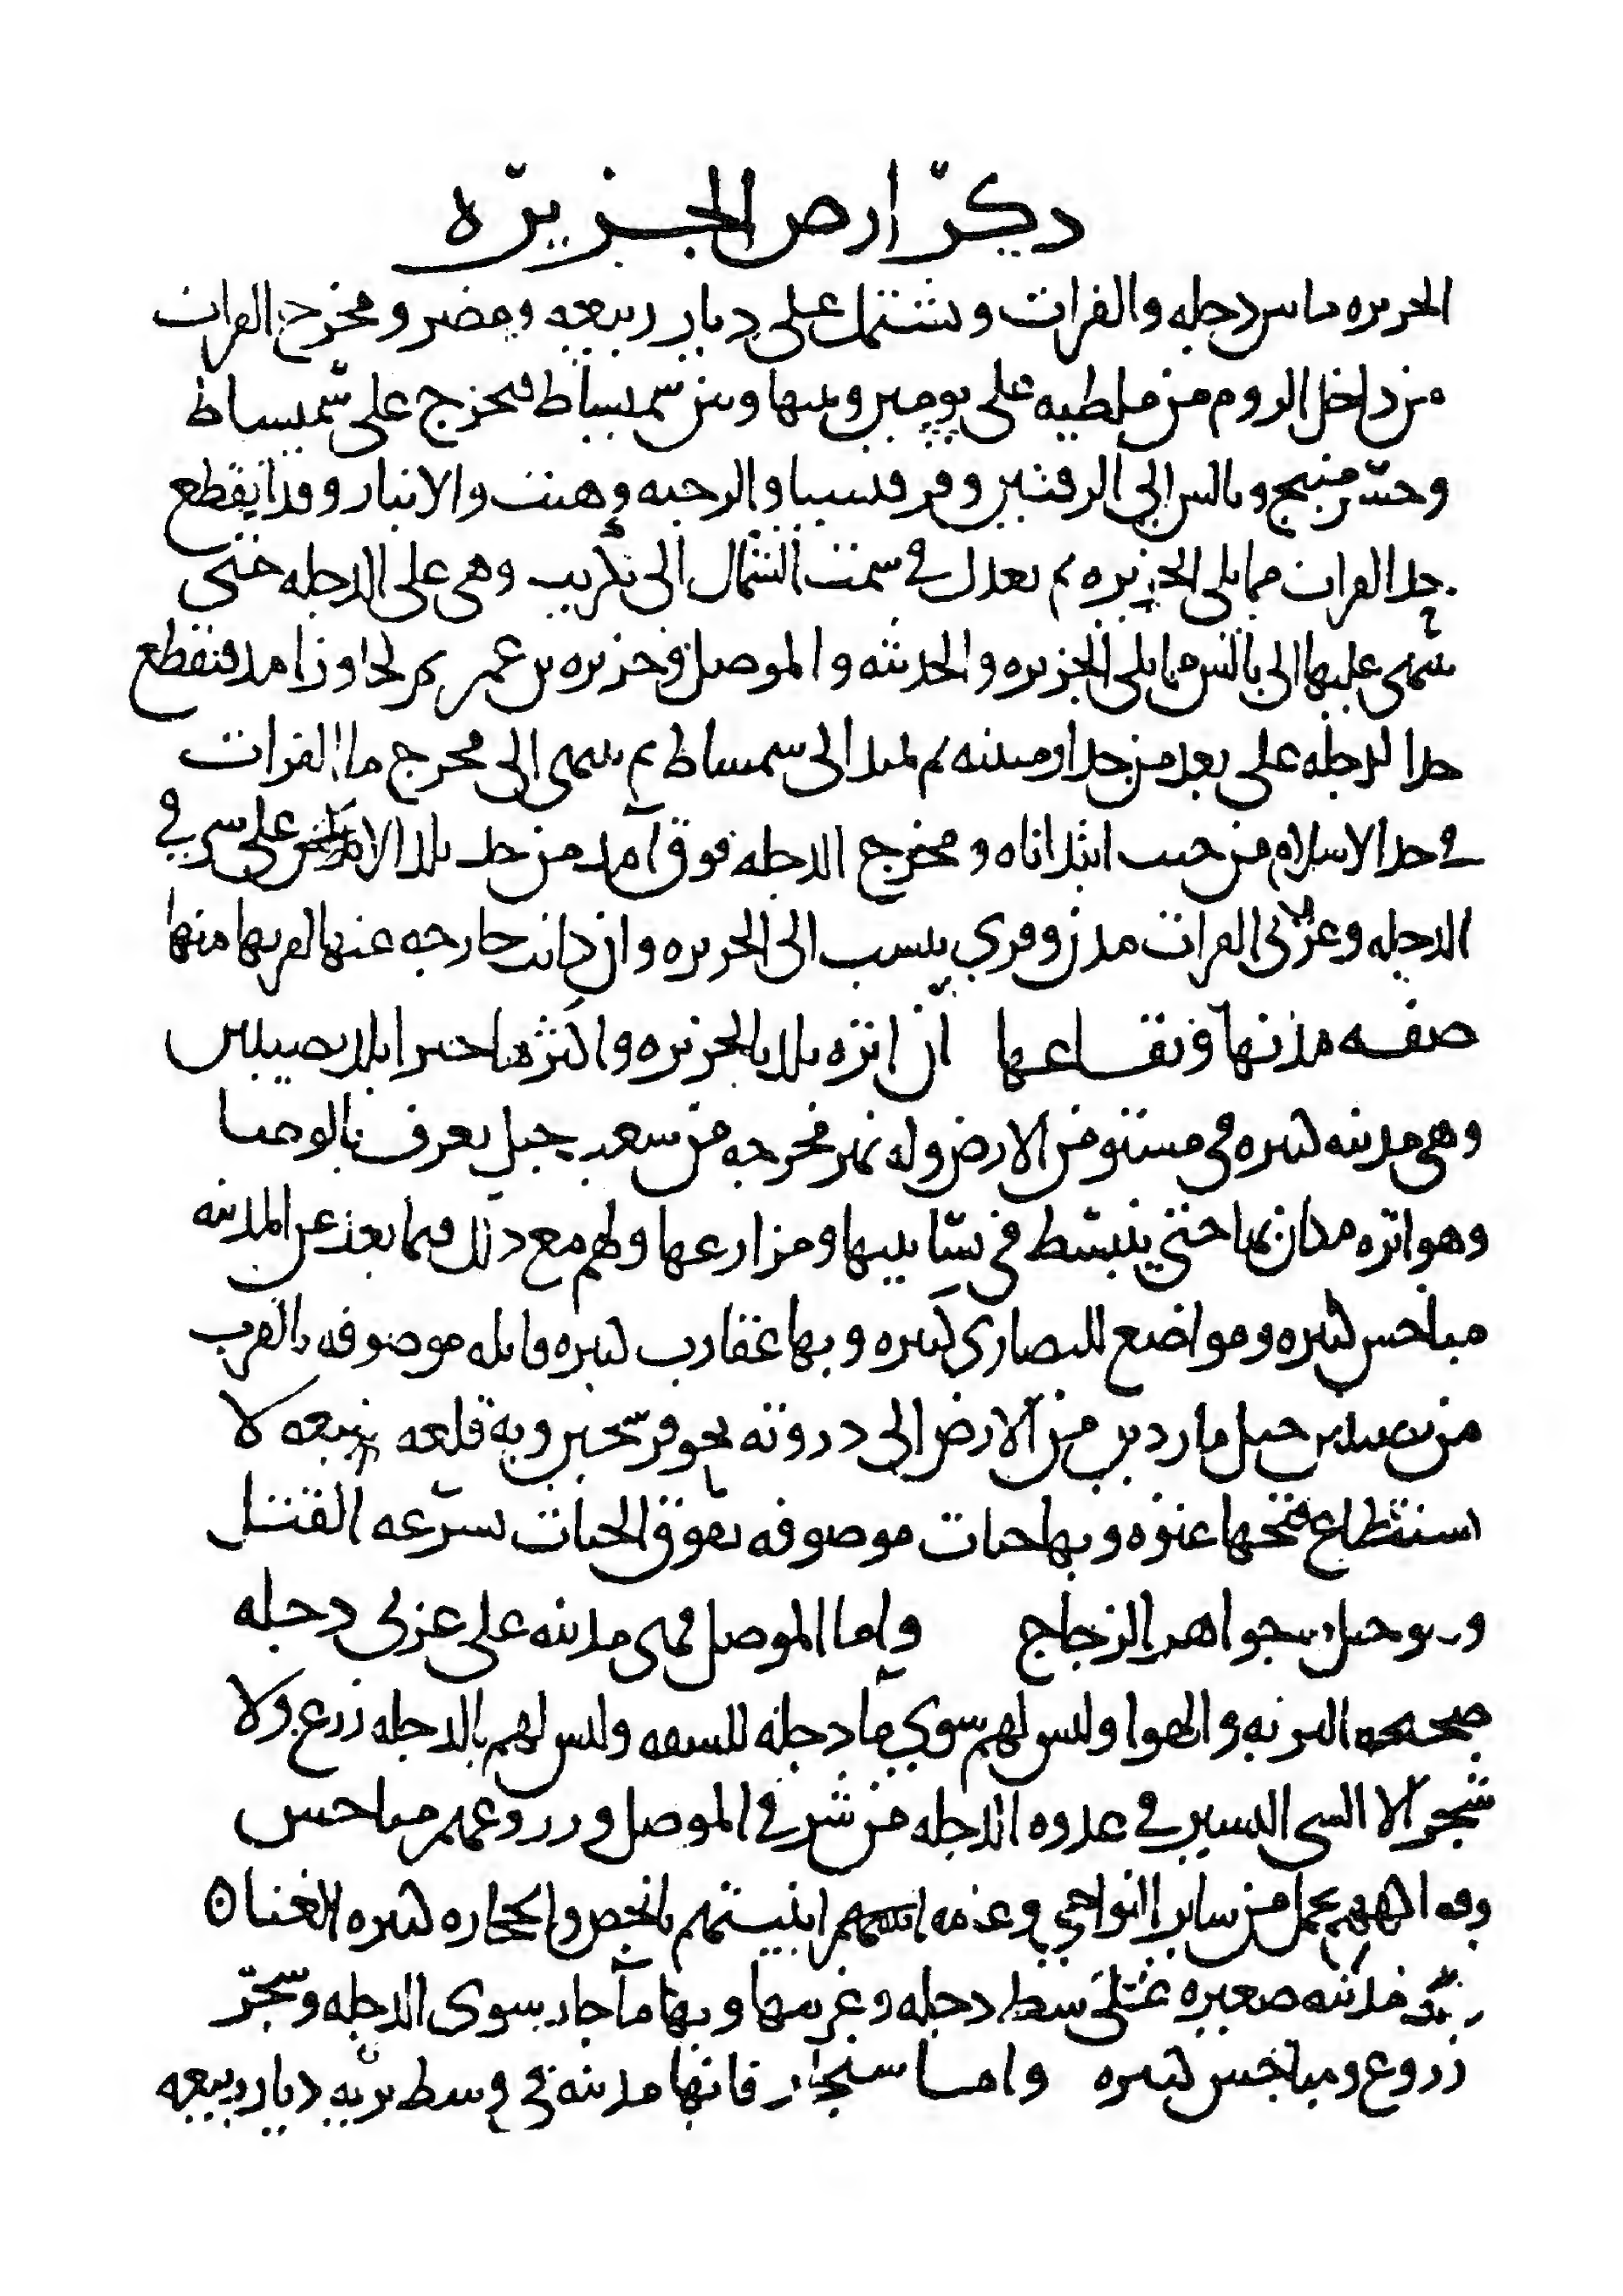 ذكر ارض الجزيره
الجزيره ما بين دجله والفرات وتشتمل على ديار ربيعه ومضر ومخرج الفرات
من داخل الروم من ملطيه على يومين وبينها وبين سميساط فيخرج على سميساط
وجسر منبج وبالس الى الرقتين وقرقيسيا والرحبه وهيت والانبار وقد انقطع
حد الفرات مما يلى الجزيره ثم يعدل في سمت الشمال الى تكريت وهى على الدجله حتي
ينتهى عليها الى بالس مما يلى الجزيره والحديثه والموصل وجزيره بن عمر ثم يجاوز امد فينقطع
حد الدجله على بعد من حد ارمينيه ثم يمتد الى سميساط ثم ينتهى الى مخرج ما الفرات
في حد الاسلام من حيث ابتداناه ومخرج الدجله فوق آمد من حد بلد الارمن وعلى شرقي
الدجله وغربى الفرات مدن وقري ينسب الى الجزيره وان كانت خارجه عنها لقربها منها
صفه مدنها وبقاعها ان انزه بلد بالجزيره واكثرها خضرا بلد نصيبين
وهى مدينه كبيره في مستو من الارض وله نهر مخرجه من شعب جبل يعرف بالوسا
وهو انزه مكان بها حتي ينبسط في بساتينها ومزارعها ولهم مع ذلك فيما بعد عن المدينه
مباخس كثيره ومواضع للنصارى كثيره وبها عقارب كثيره قاتله موصوفه بالقرب
من نصيبين جبل ماردين من الارض الى دروته نحو فرسخين وبه قلعه منيعه لا
استطاع فتحها عنوه وبها حيات موصوفه تفوق الحيات بسرعه القتل
وبه جبل به جواهر الزجاج واما الموصل فهى مدينه على غربى دجله
صحيحه التربه والهوا وليس لهم سوي ما دجله للسقه وليس لهم بالدجله زرع ولا
شجر الا الشى اليسير في عدوه الدجله من شرقي الموصل وزروعهم مباخس
وفواكههم تحمل من ساير النواحي وعامه ابنيتهم بالجص والحجاره كبيره الغنا ه
بلد مدينه صغيره على شط دجله وغربيها وبها ما جار سوى الدجله وشجر
زروع ومباخس كثيره واما سنجار فانها مدينه في وسط بريه ديار ربيعه